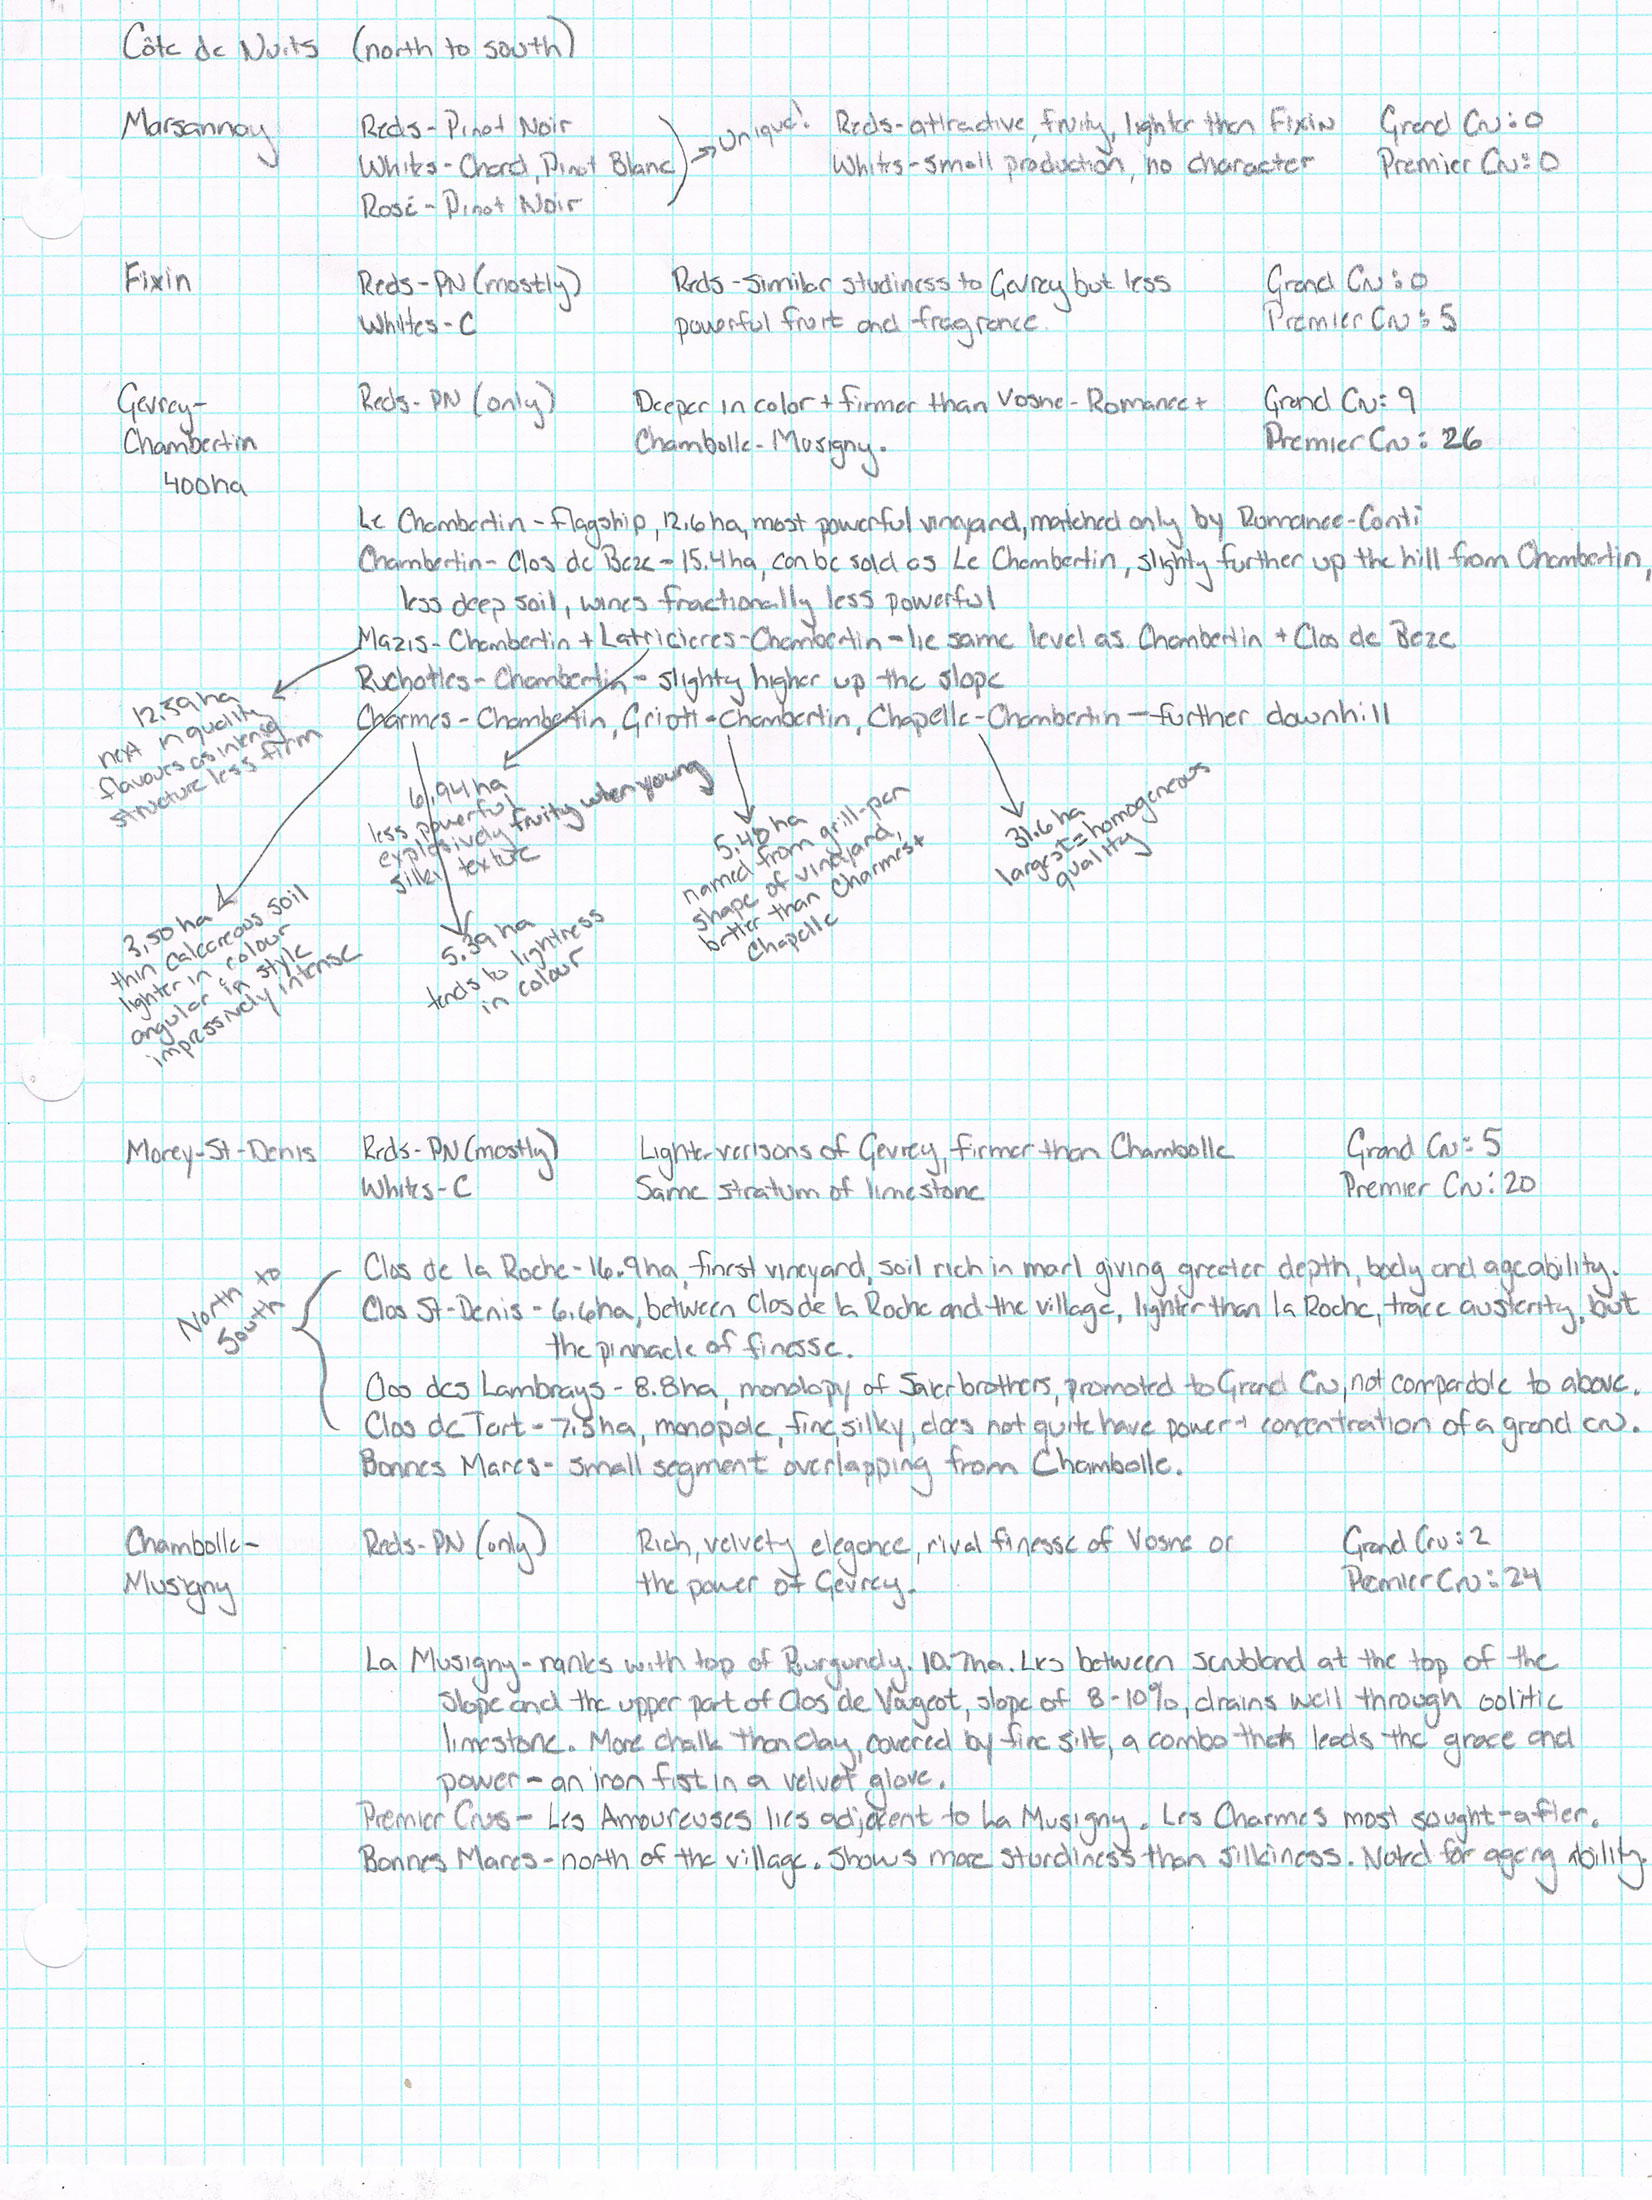 Côte de Nuits (north to south)
Marsannay Reds - Pinot Noir Unique! Reds - attractive, fruity, lighter than Fixin Grand Cru: 0
Whites - Chard, Pinot Blanc Whites - small production, no character Premier Cru: 0
Rosé - Pinot Noir
Fixin Reds - PN (mostly) Reds - similar studiness to Gevrey but less Grand Cru: 0
Whites - C powerful fruit and fragrance. Premier Cru: 5
Gevrey- Reds - PN (only) Deeper in color + firmer than Vosne-Romanee + Grand Cru: 9
Chambertin Chambolle-Musigny. Premier Cru: 26
400ha
Le Chambertin - flagship, 12.6 ha, most powerful vineyard, matched only by Romanee-Conti
Chambertin-Clos de Beze - 15.4ha, can be sold as Le Chambertin, slighty further up the hill from Chambertin,
less deep soil, wines fractionally less powerful
Mazis-Chambertin + Latricieres-Chambertin - lie same level as Chambertin + Clos de Beze
Ruchottes-Chambertin - slighty higher up the slope
Charmes-Chambertin, Griott-Chambertin, Chapelle-Chambertin - further downhill
12.59 ha
next in quality
flavours as intense
structure less firm
6.94 ha
less powerful
explosively fruity when young
silky texture
5.48 ha
named from grill-pan
shape of vineyard,
better than Charmes +
Chapelle
31.6 ha
largest = homogeneous
quality
3.50 ha
thin calcareous soil
lighter in colour
angular in style
impressively intense
5.39 ha
tends to lightness
in colour
Morey-St-Denis Reds - PN (mostly) Lighter verisons of Gevrey, firmer than Chambolle Grand Cru: 5
Whites - C Same stratum of limestone Premier Cru: 20
North to
South
Clos de la Roche - 16.9ha, finest vineyard, soil rich in marl giving greater depth, body and ageability.
Clos St-Denis - 6.6ha, between Clos de la Roche and the village, lighter than la Roche, trace austerity, but
the pinnacle of finesse.
Clos des Lambrays - 8.8ha, monolopy of Saier brothers, promoted to Grand Cru, not comparable to above.
Clos de Tart - 7.5ha, monopole, fine, silky, does not quite have power + concentration of a grand cru.
Bonnes Mares - small segment overlapping from Chambolle.
Chambolle- Reds - PN (only) Rich, velvety elegance, rival finesse of Vosne or Grand Cru: 2
Musigny the power of Gevrey. Premier Cru: 24
La Musigny - ranks with top of Burgundy. 10.7ha. Lies between scrubland at the top of the
slope and the upper part of Clos de Vougeot, slope of 8-10%, drains well through oolitic
limestone. More chalk than clay, covered by fine silt, a combo that leads the grace and
power - an iron fist in a velvet glove.
Premier Crus - Les Amoureuses lies adjacent to La Musigny. Les Charmes most sought-after.
Bonnes Mares - north of the village. Shows more sturdiness than silkiness. Noted for ageing ability.